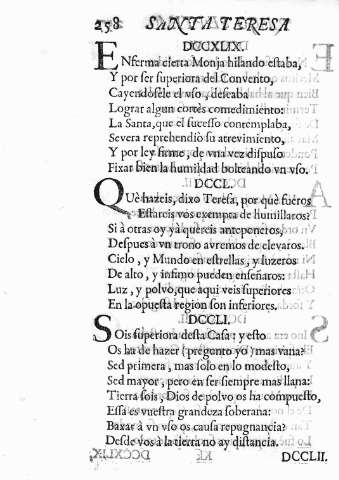 258 SANTA TERESA
DCCXLIX.
ENferma cierta Monja hilando estaba,
Y por ser superiora del Convento,
Cayendosele el vso, deseaba
Lograr algun cortès comedimiento:
La Santa, que el sucesso contemplaba,
Severa reprehendiò su atrevimiento,
Y por ley firme, de vna vez dispuso
Fixar bien la humildad bolteando vn vso.
DCCL.
QUè hazeis, dixo Teresa, por què fueros
Estareis vos exempta de humillaros?
Si à otras oy yà quereis anteponeros,
Despues à vn trono avremos de elevaros.
Cielo, y Mundo en estrellas, y luzeros
De alto, y infimo pueden enseñaros:
Luz, y polvo, que aqui veis superiores
En la opuesta region son inferiores.
DCCLI.
SOis superiora desta Casa: y esto
Os ha de hazer (pregunto yo) mas vana?
Sed primera, mas solo en lo modesto,
Sed mayor, pero en ser siempre mas llana:
Tierra sois, Dios de polvo os ha compuesto,
Essa es vuestra grandeza soberana:
Baxar à vn vso os causa repugnancia?
Desde vos à la tierra no ay distancia.
DCCLII.